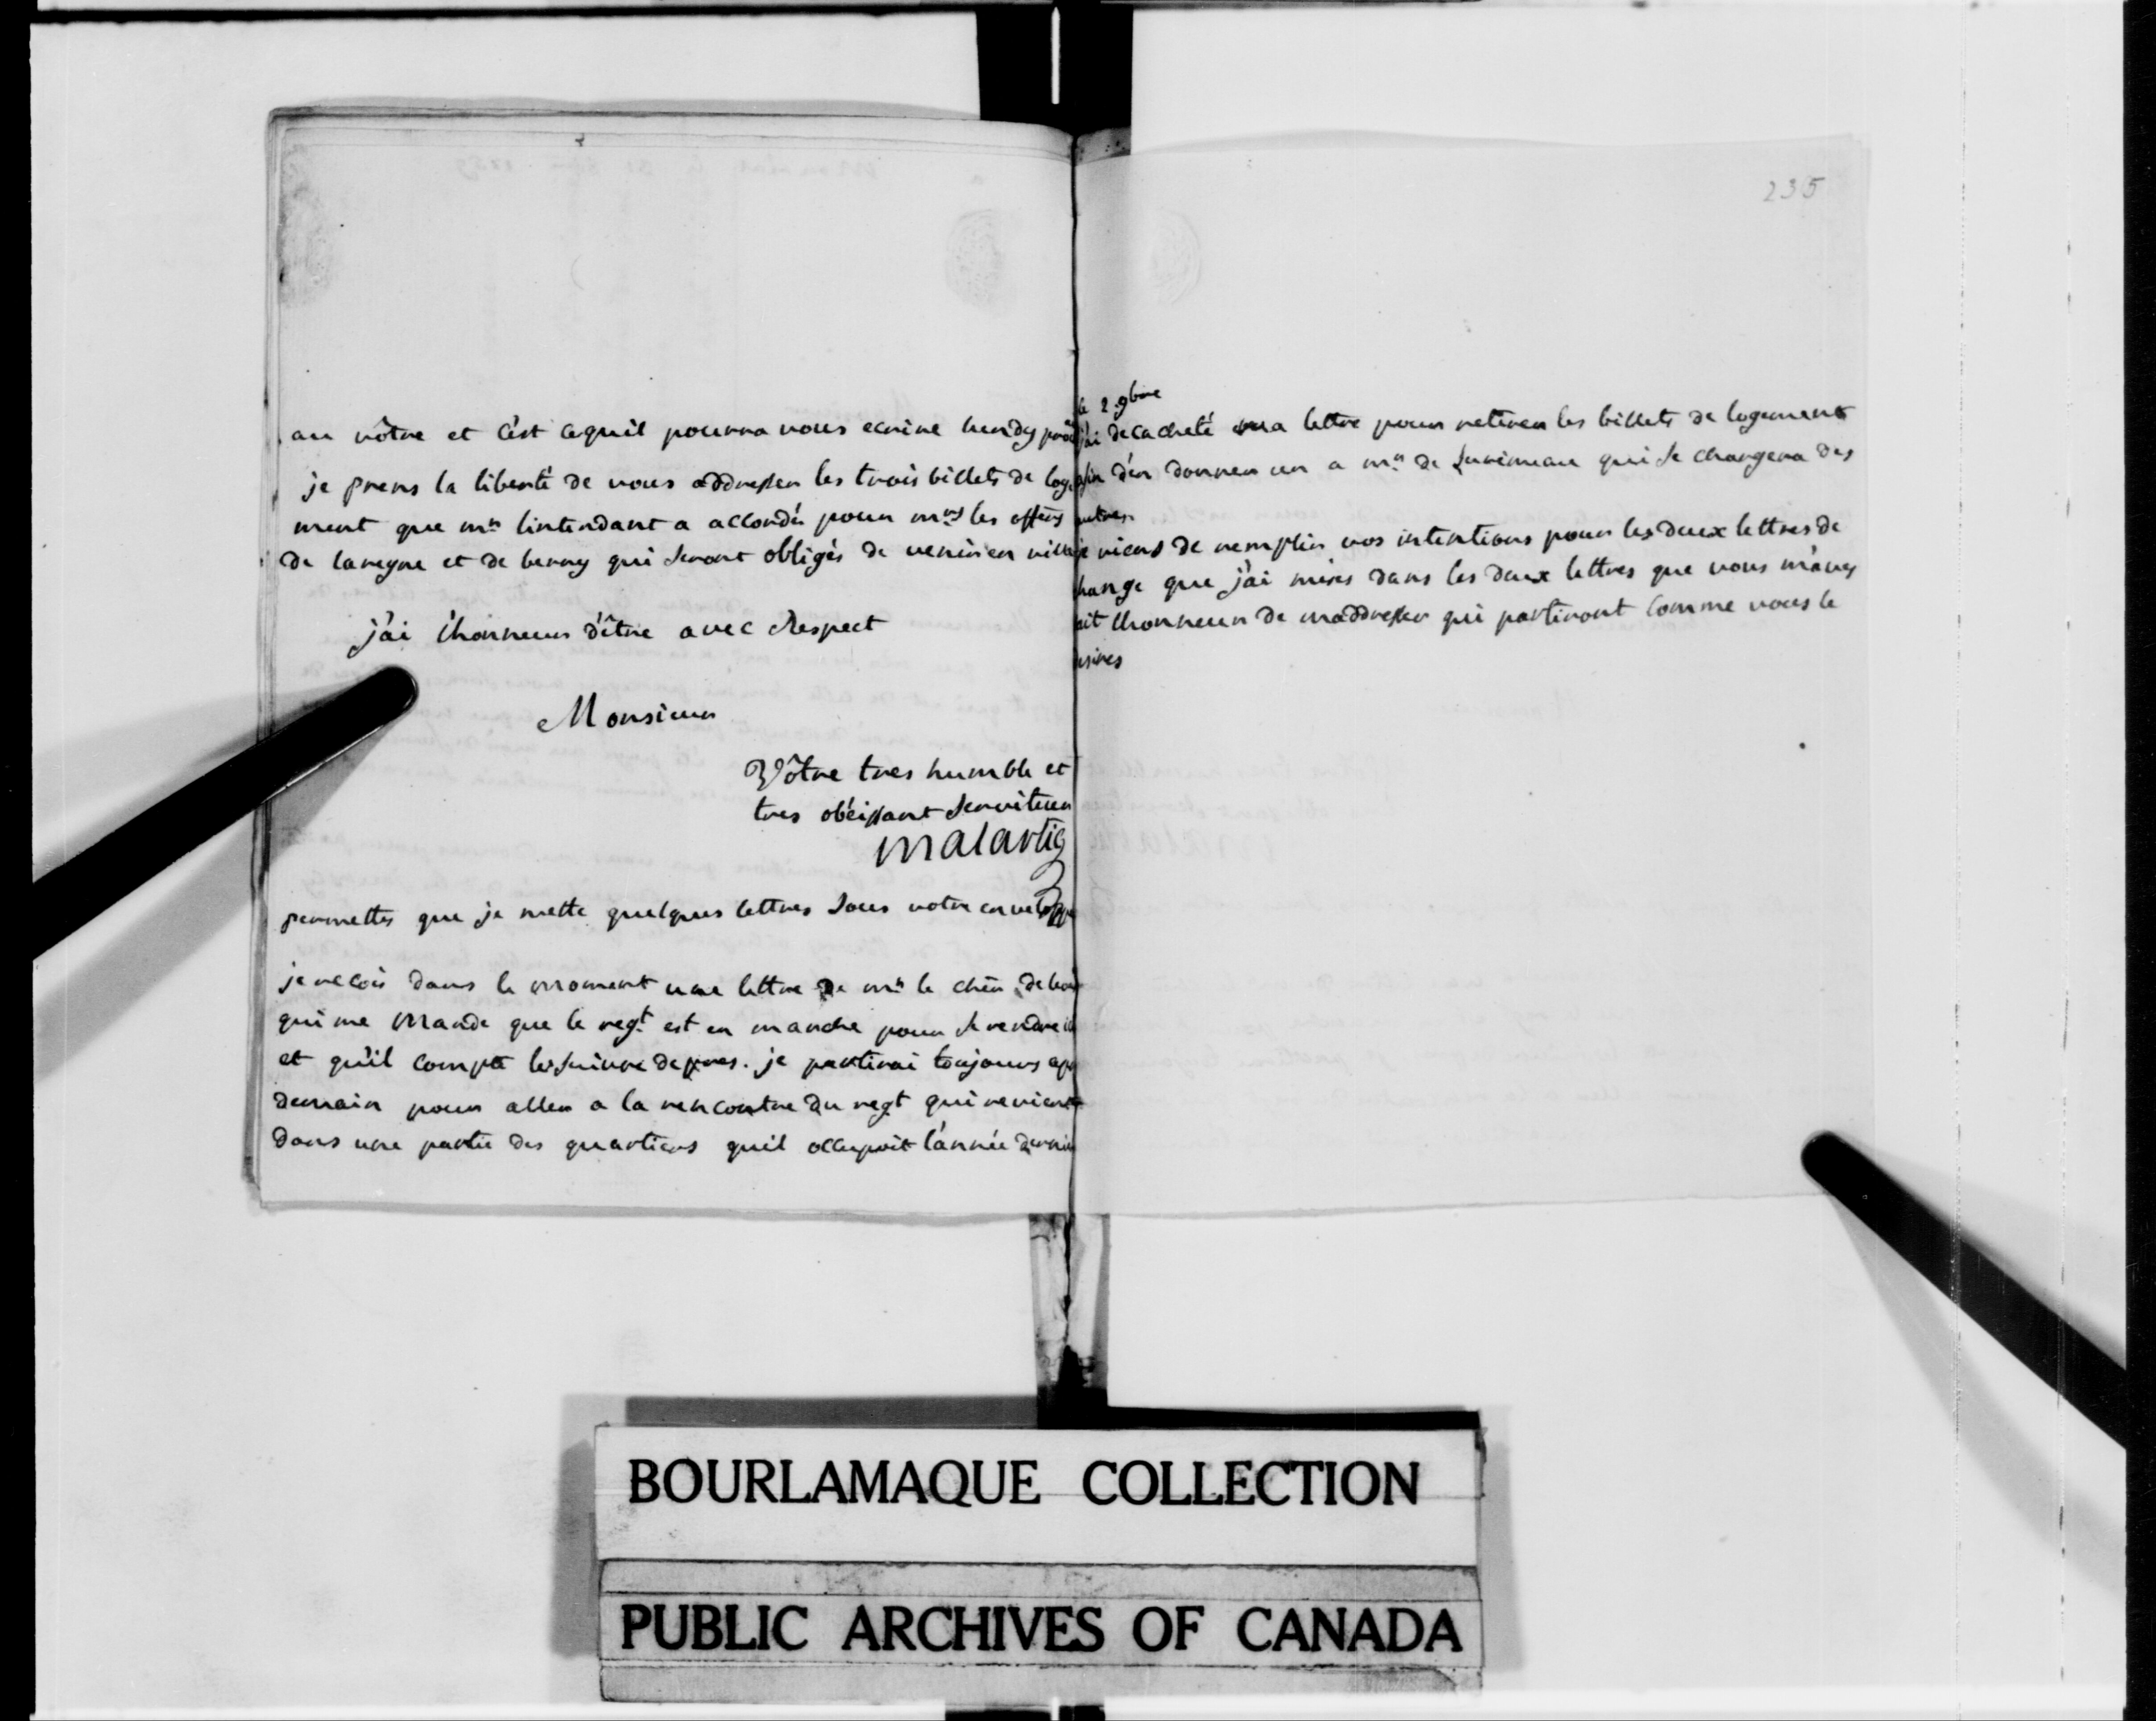 au vôtre et c'est cequil pourra vous ecrire lundy
je prens la liberté de vous addresser les trois billets de loge
ment que mr lintendant a accordés pour mrs les offers
de lareyne et de berry qui seront obligés de venir en ville
j'ai l'honneur d'être avec Respect
Monsieur
Vôtre tres humble et
tres obéissant serviteur
malartic
permettes que je mette quelques lettres sous votre enveloppe
je recois dans le moment une lettre de mr le chēr
qui me Mande que le regt est en marche pour se rendre
et qu'il compte le suivre de pres. je partirai toujours
demain pour aller a la rencontre du regt qui revient
dans une partie des quartiers quil occupoit l'année
235
le 2 9bre
j'ai decacheté ma lettre pour retirer les billets de logement
afin d'en donner un a mr de qui se chargera des
autres.
je viens de remplir vos intentions pour les deux lettres de
hange que j'ai mises dans les deux lettres que vous m'avez
ait lhonneur de maddresser qui partiront comme vous le
esires
BOURLAMAQUE COLLECTION
PUBLIC ARCHIVES OF CANADA